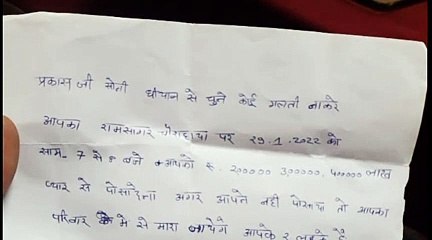 प्रकास जी सोनी धीयान से सुने कोई गलती नाकरे
आपका रामसागर पर 29.1.2022 को
साम- 7 से 8 बजे आपको रु. 200000 300000, 400000 लाख
प्यार से अगर आपने नही तो आपका
परिबार मे से मारा जायेगे आपके 2 लड़के है